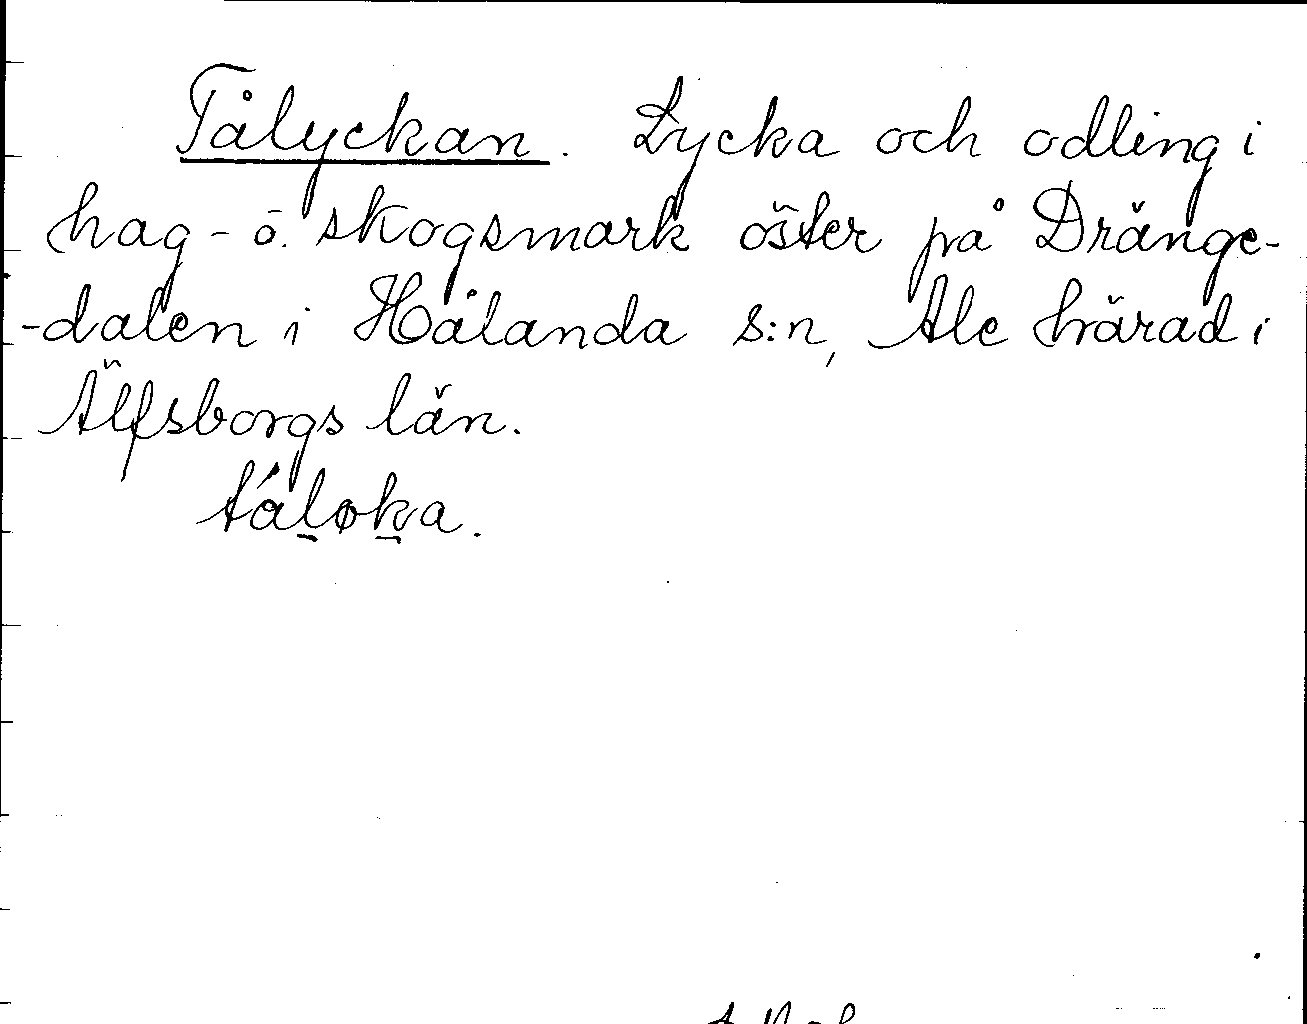 Tålyckan. Lycka och odling i
hag- o. skogsmark öster på Dränge-
-dalen i Hålanda s:n, Ale härad i
Älfsborgs län.
tǻløka.